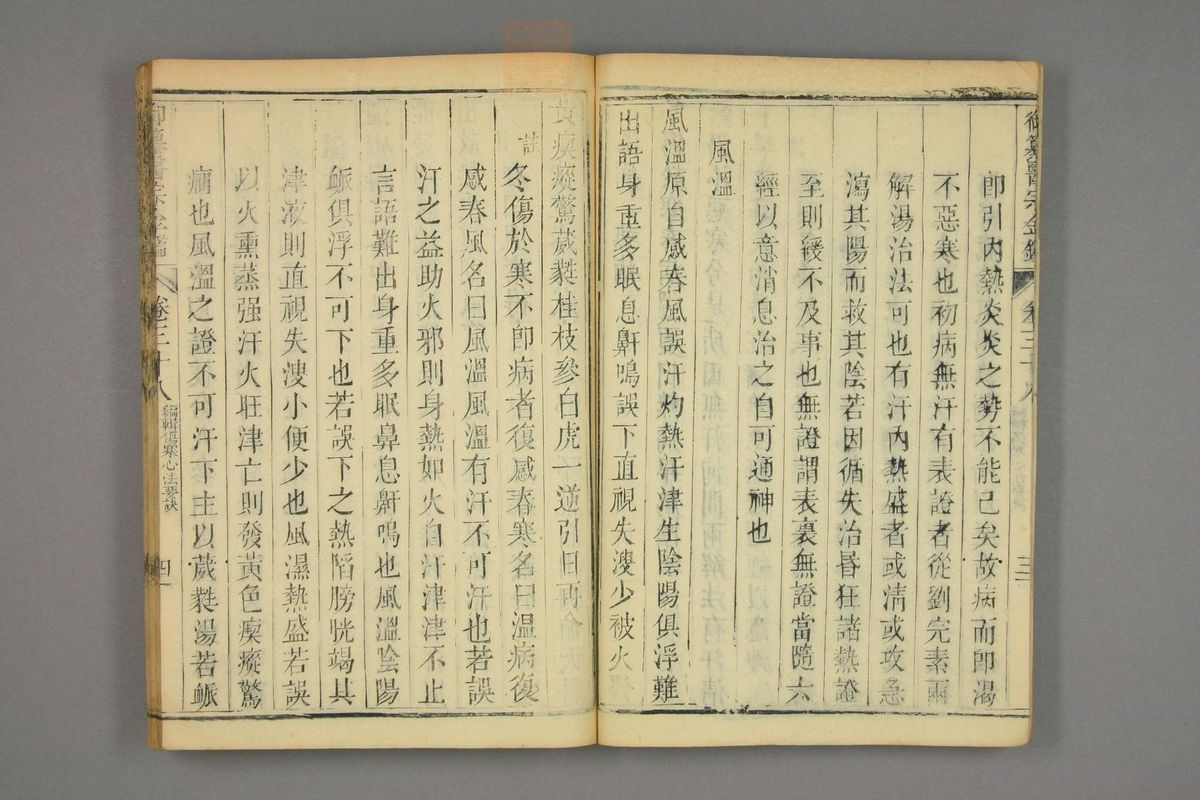 御纂醫宗金鑑 卷三十八 三
卽引內熱炎炎之勢不能已矣故病而卽渴
不惡寒也初病無汗有表證者從劉完素兩
解湯治法可也有汗內熱盛者或清或攻急
瀉其陽而救其陰若因循失治昏狂諸熱證
至則緩不及事也無證謂表裏無證當隨六
經以意消息治之自可通神也
風溫
風溫原自感春風誤汗灼熱汗津生陰陽俱浮難
出語身重多眠息鼾鳴誤下直視失溲少被火
發黃瘈瘲驚葳蕤桂枝參白虎一逆引日再
註
冬傷於寒不卽病者復感春寒名曰溫病復
感春風名曰風溫風溫有汗不可汗也若誤
汗之益助火邪則身熱如火自汗津津不止
言語難出身重多眠鼻息鼾鳴也風溫陰陽
脈俱浮不可下也若誤下之熱陷膀胱竭其
津液則直視失溲小便少也風濕熱盛若誤
以火熏蒸强汗火旺津亡則發黃色瘈瘲驚
癎也風溫之證不可汗下主以葳蕤湯若脈
御纂醫宗金鑑 卷三十八 編輯傷寒心法要訣 四